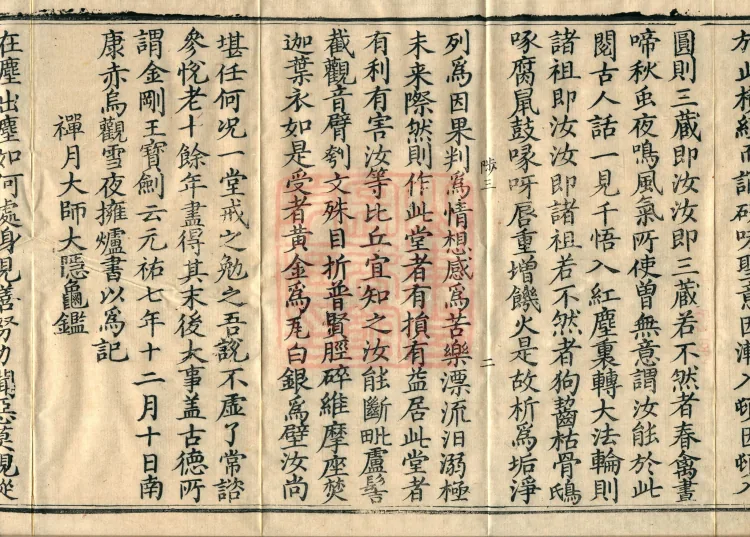 聖意因漸入頓因頓入
圓則三藏即汝汝即三藏若不然者春禽晝
啼秋虫夜鳴風氣所使曾無意謂汝能於此
閱古人話一見千悟入紅塵裏轉大法輪則
諸祖即汝汝即諸祖若不然者狗齧枯骨鴟
啄腐鼠鼓喙呀唇重增饑火是故析爲垢淨
陟三 二
列爲因果判爲情想感爲苦樂漂流汨溺極
未来際然則作此堂者有損有益居此堂者
有利有害汝等比丘宜知之汝能斷毗盧髻
截觀音臂刳文殊目折普賢脛碎維摩座焚
迦葉衣如是受者黃金爲瓦白銀爲壁汝尚
堪任何况一堂戒之勉之吾說不虛了常諮
參悅老十餘年盡得其末後大事盖古德所
謂金剛王寶劍云元祐七年十二月十日南
康赤烏觀雪夜擁爐書以爲記
禪月大師大隱龜鑑
在塵出塵如何處身見善努力聞惡莫